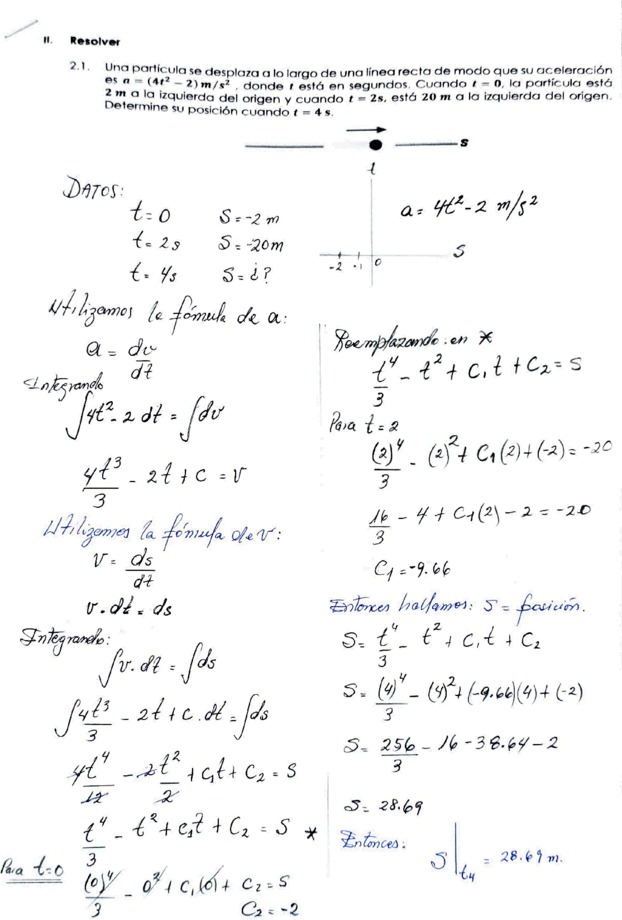 II. Resolver
2.1. Una partícula se desplaza a lo largo de una línea recta de modo que su aceleración
es a = (4t² − 2) m/s² , donde t está en segundos. Cuando t = 0, la partícula está
2 m a la izquierda del origen y cuando t = 2s, está 20 m a la izquierda del origen.
Determine su posición cuando t = 4 s.
s
t
DATOS:
t=0 S=-2 m
t=2s S=-20m
t=4s S=¿?
a= 4t²-2 m/s²
S
-2 -1 0
Utilizamos la fórmula de a:
a = dv/dt
Integrando
∫4t²-2 dt = ∫dv
4t³/3 - 2t + c = v
Utilizemos la fómula de v:
v= ds/dt
v.dt= ds
Integrando:
∫v.dt = ∫ds
∫4t³/3 - 2t + c.dt = ∫ds
4t⁴/12 - 2t²/2 + c₁t + C₂ = S
t⁴/3 - t² + c₁t + C₂ = S *
Para t=0 (0)⁴/3 - 0² + c₁(0) + C₂=S
C₂ = -2
Reemplazando en *
t⁴/3 - t² + C₁t + C₂ = S
Para t=2
(2)⁴/3 - (2)² + C₁(2)+(-2)=-20
16/3 - 4 + C₁(2) - 2 = -20
C₁=-9.66
Entonces hallamos: S = posición.
S= t⁴/3 - t² + C₁t + C₂
S= (4)⁴/3 - (4)²+(-9.66)(4)+(-2)
S= 256/3 - 16 - 38.64 - 2
S= 28.69
Entonces: S|t₄ = 28.69 m.